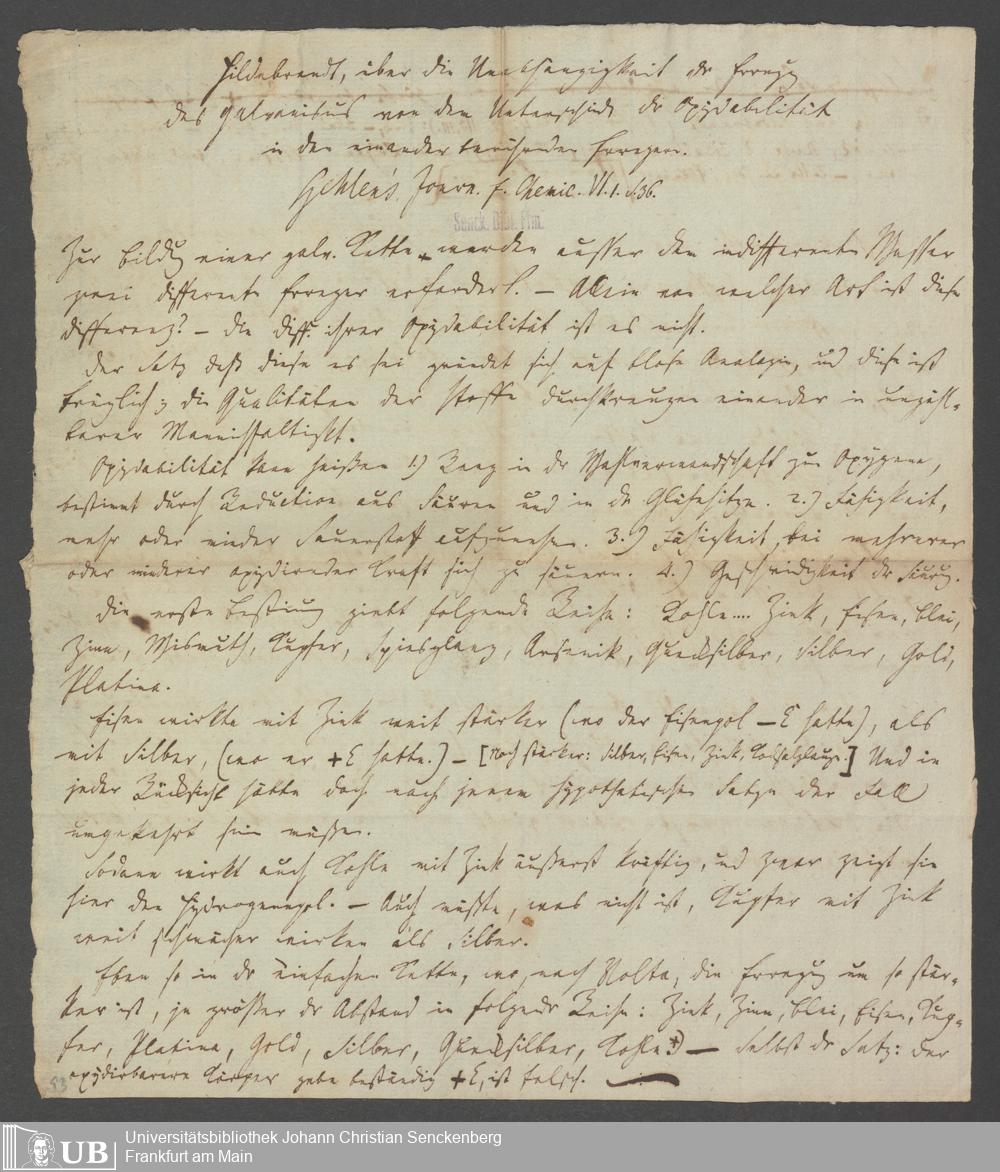 Hildebrandt, über die Unabhängigkeit der Erregg
des Galvanismus von dem Unterschiede der Oxydabilität
in den einander berührenden Erregern.
Gehlen's Journ. f. Chemie. VI. 1. S. 36.
Senck. Bibl. Ffm.
Zur Bildg einer galv. Kette werden ausser dem indifferenten Wasser
zwei differente Erreger erforderl. – Allein von welcher Art ist diese
Differenz? – Die Diff. ihrer Oxydabilität ist es nicht.
Der Satz daß diese es sei gründet sich auf blose Analogie, und diese ist
trüglich; die Qualitäten der Stoffe durchkreuzen einander in unzähl-
barer Mannigfaltigkt.
Oxydabilität kan heißen 1.) Rang in der Wahlverwandschaft zum Oxygene,
bestimmt durch Reduction aus Säuren und in der Glühehitze. 2.) Fähigkeit,
mehr oder minder Sauerstoff aufzunehmen. 3.) Fähigkeit, bei mehrerer
oder minderer oxydirender Kraft sich zu säuern. 4.) Geschwindigkeit der Säurg.
Die erste Bestimung giebt folgende Reihe: Kohle.... Zink, Eisen, Blei,
Zinn, Wismuth, Kupfer, Spiesglanz, Arsenik, Quecksilber, Silber, Gold,
Platina.
Eisen wirkte mit Zink weit stärker (wo der Eisenpol – E hatte), als
mit Silber, (wo er + E hatte.) – [Noch stärker: Silber, Eisen, Zink,] Und in
jeder Rücksicht hätte doch nach jenem hypothetischen Satze der Fall
umgekehrt sein müßen.
Sodann wirkt auch Kohle mit Zink äußerst kräftig, und zwar zeigt sie
hier den Hydrogenpol. – Auch müßte, was nicht ist, Kupfer mit Zink
weit schwächer wirken als Silber.
Eben so in der einfachen Kette, wo, nach Volta, die Erregg um so stär-
ker ist, je größer der Abstand in folgender Reihe: Zink, Zinn, Blei, Eisen, Kup-
fer, Platina, Gold, Silber, Quecksilber, Kohle – Selbst der Satz: der
oxydirbarere Körper gebe beständig + E, ist falsch.
53
UB
Universitätsbibliothek Johann Christian Senckenberg
Frankfurt am Main